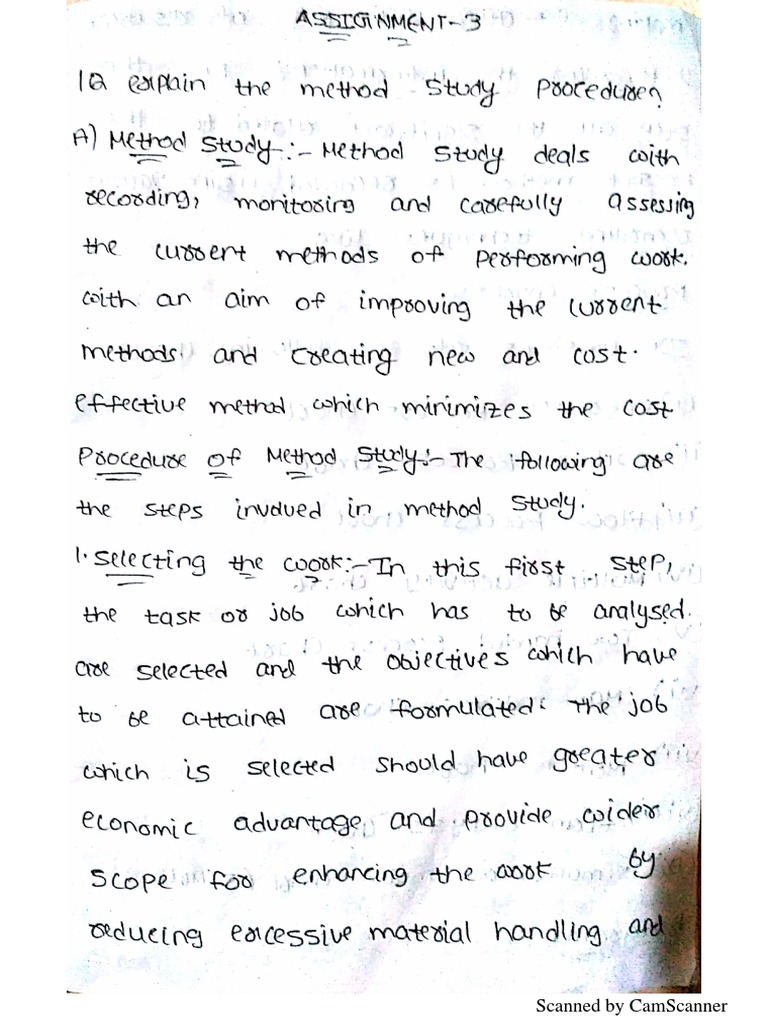 ASSIGNMENT-3
1Q explain the method study procedure?
A) Method Study:- Method study deals with
recording, monitoring and carefully assessing
the current methods of performing work.
with an aim of improving the current
methods and creating new and cost.
effective method which minimizes the cost
Procedure of Method Study:- The following are
the steps invovued in method study.
1. selecting the work:- In this first step,
the task or job which has to be analysed.
are selected and the objectives which have
to be attained are formulated. The job
which is selected should have greater
economic advantage and provide wider
scope for enhancing the work by
reducing excessive material handling and
Scanned by CamScanner